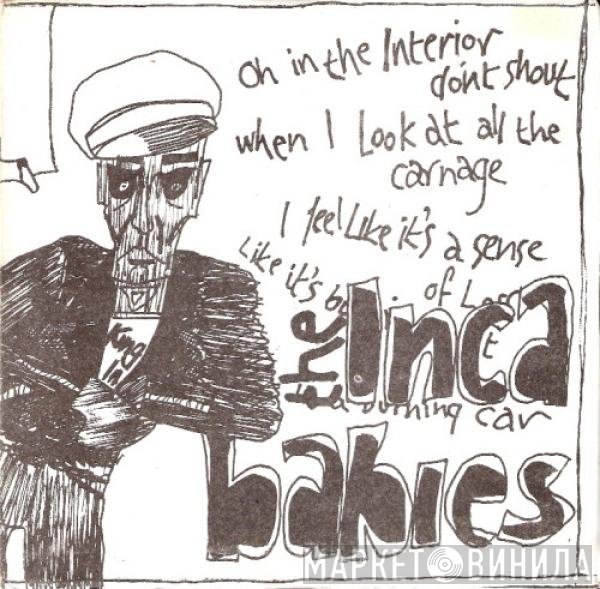 Oh in the Interior
don't shout
when I Look at all the
carnage
I feel Like it's a sense
of
Like it's
the Inca
burning car
babies
King
In
МАРКЕТ ВИНИЛА